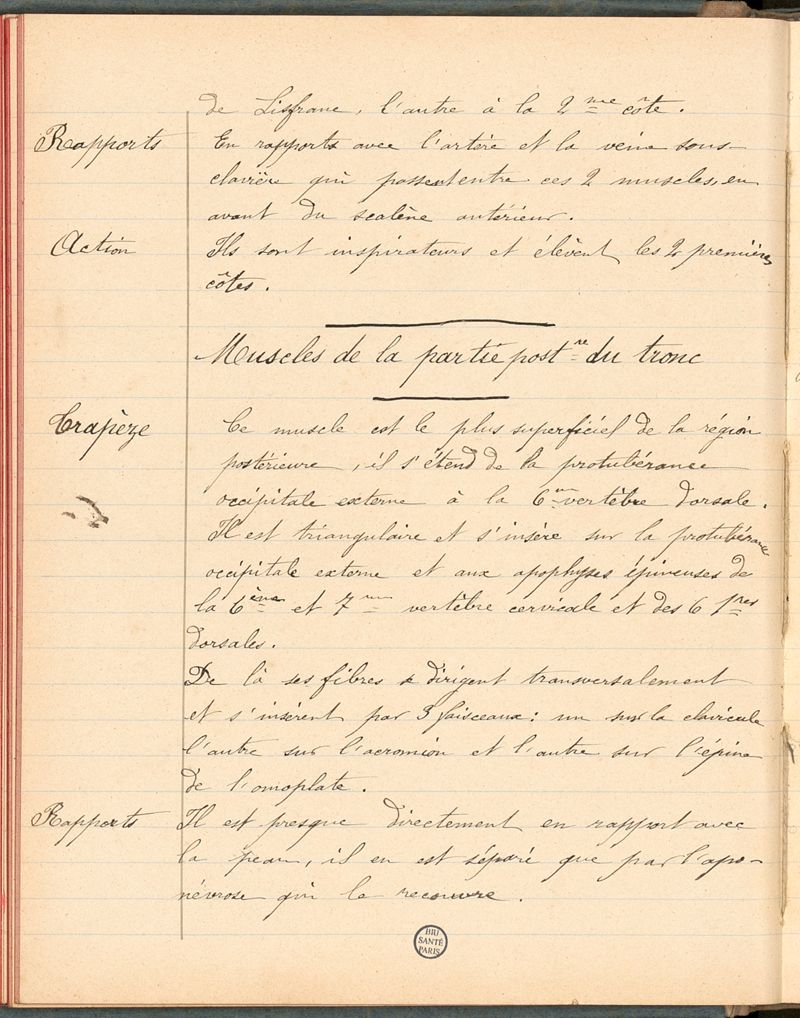 de Lisfranc, l'autre à la 2me côte.
Rapports En rapports avec l'artère et la veine sous-
clavière qui passent entre ces 2 muscles, en
avant du scalène antérieur.
Action Ils sont inspirateurs et élèvent les 2 premières
côtes.
Muscles de la partie postre du tronc
Trapèze Ce muscle est le plus superficiel de la région
postérieure, il s'étend de la protubérance
occipitale externe à la 6me vertèbre dorsale.
Il est triangulaire et s'insère sur la protubérance
occipitale externe et aux apophyses épineuses de
la 6ème et 7me vertèbre cervicale et des 6 1res
dorsales.
De là ses fibres se dirigent transversalement
et s'insèrent par 3 faisceaux: un sur la clavicule
l'autre sur l'acromion et l'autre sur l'épine
de l'omoplate.
Rapports Il est presque directement en rapport avec
la peau, il en est séparé que par l'apo-
névrose qui le recouvre.
BIU
SANTÉ
PARIS